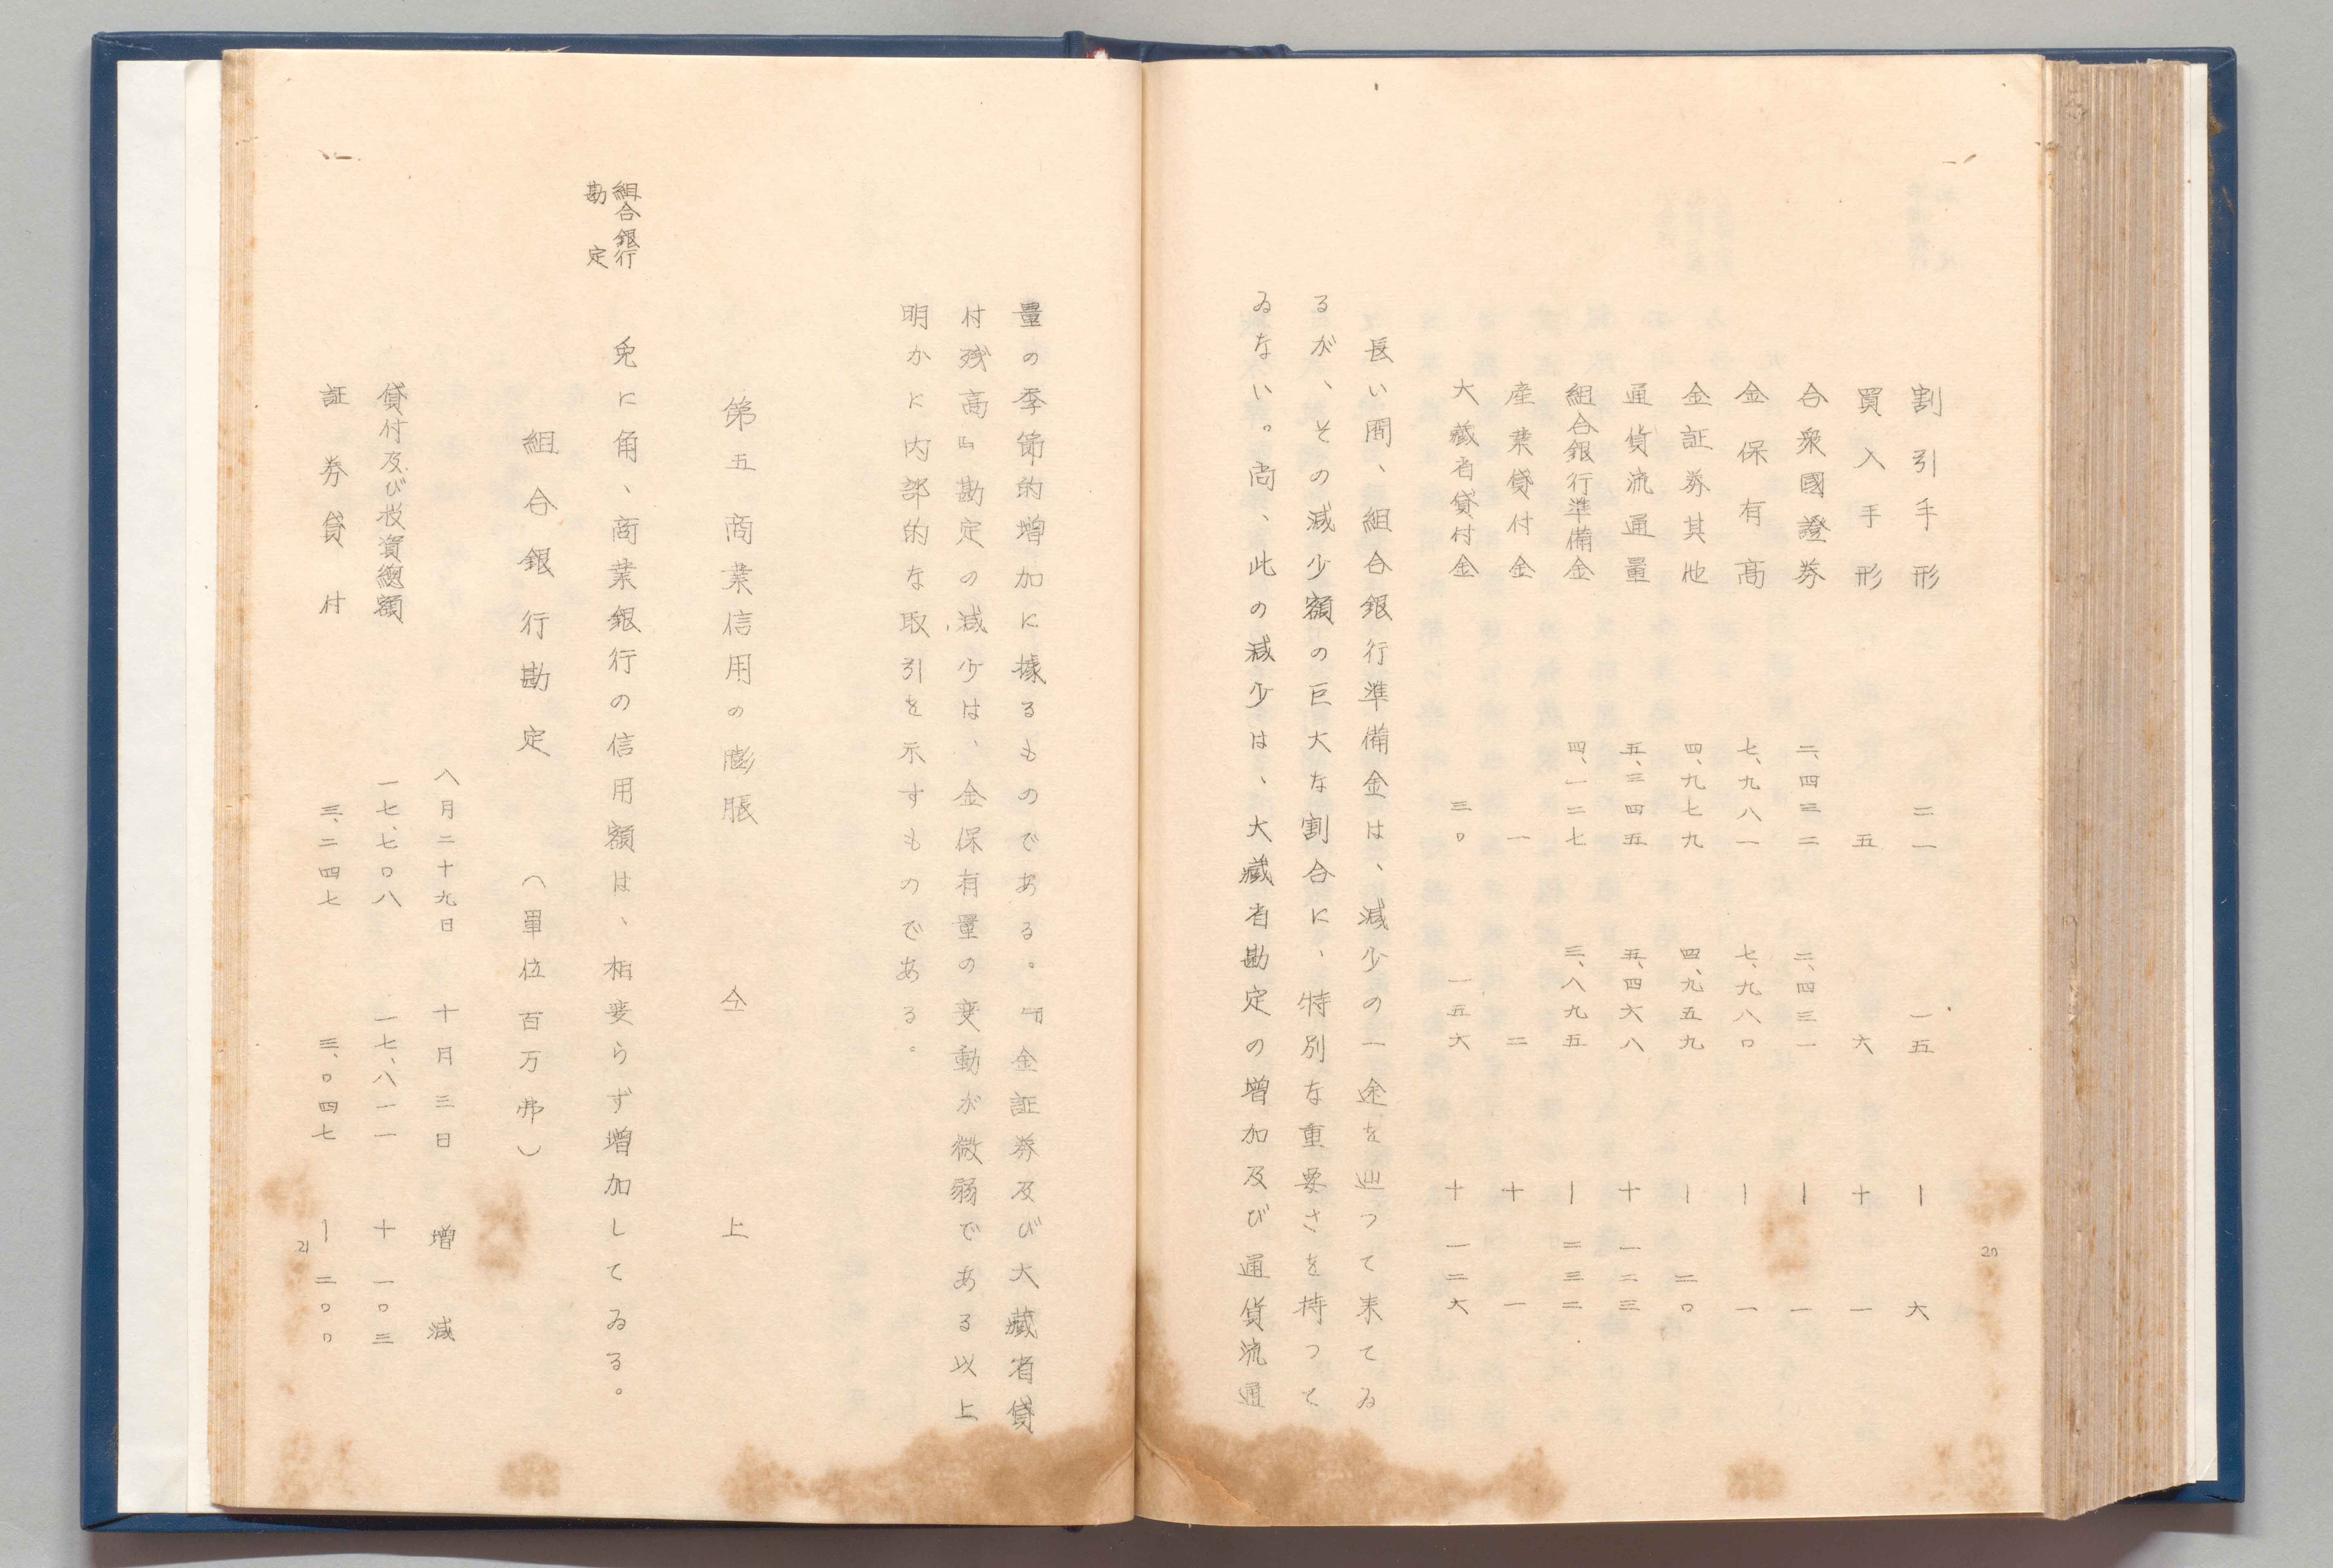 割引手形 二一 一五 ー 六
買入手形 五 六 十 一
合衆國證券 二、四三二 二、四三一 ー 一
金保有高 七、九八一 七、九八〇 ー 一
金証券其他 四、九七九 四、九五九 ー 二〇
通貨流通量 五、三四五 五、四六八 十 一二三
組合銀行準備金 四、一二七 三、八九五 ー 二三二
産業貸付金 一 二 十 一
大藏省貸付金 三〇 一五六 十 一二六
長い間、組合銀行準備金は、減少の一途を辿つて来てゐ
るが、その減少額の巨大な割合に、特別な重要さを持つて
ゐない。尚、此の減少は、大藏省勘定の増加及び通貨流通
20
量の季節的増加に據るものである。『金証券及び大藏省貸
付残高』勘定の減少は、金保有量の変動が微弱である以上
明かに内部的な取引を示すものである。
第五 商業信用の膨脹 仝 上
組合銀行
勘定
兎に角、商業銀行の信用額は、相変らず増加してゐる。
組合銀行勘定 (單位百万弗)
八月二十九日 十月三日 増減
貸付及び投資總額 一七、七〇八 一七、八一一 十 一〇三
証券貸付 三、二四七 三、〇四七 ー 二〇〇
21